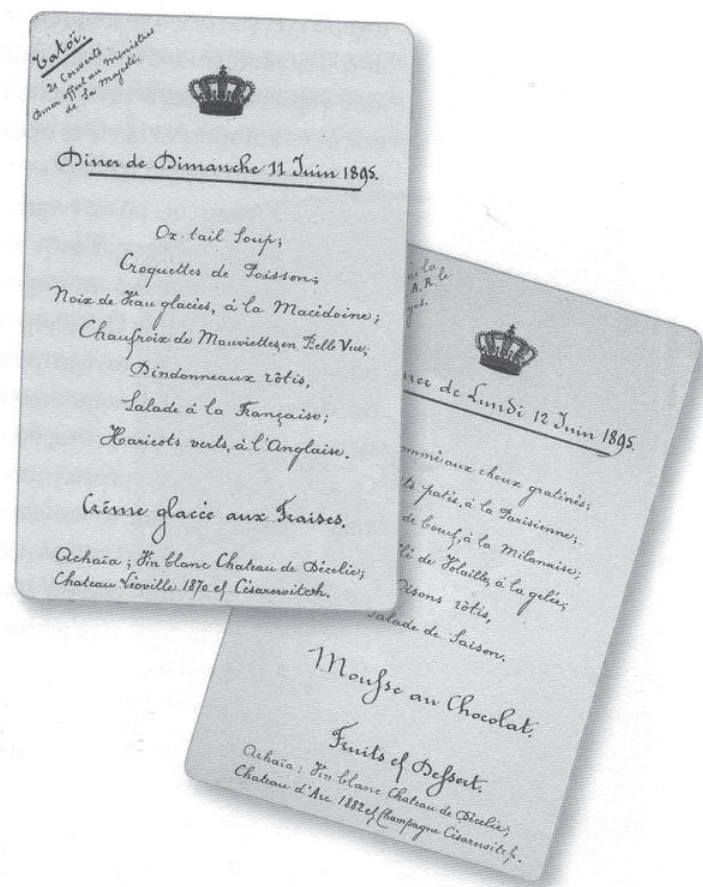 Tatoï.
21 Couverts
Diner offert au Ministres
de Sa Majesté.
Diner de Dimanche 11 Juin 1895.
Ox-tail Soup;
Croquettes de Poisson;
Noix de Veau glacées, à la Macédoine;
Chaufroix de Mauviettes, en Belle Vue;
Dindonneaux rôtis,
Salade à la Française;
Haricots verts, à l'Anglaise.
Crème glacée aux Fraises.
Achaïa; Vin blanc Chateau de Décélie;
Chateau Léoville 1870 et Césarewitch.
à la
A. R. le
ner de Lundi 12 Juin 1895.
ommé aux choux gratinés;
ts patés, à la Parisienne;
de bœuf, à la Milanaise;
de Volailles, à la gelée;
Oisons rôtis,
Salade de Saison.
Mousse au Chocolat.
Fruits et Dessert.
Achaïa; Vin blanc Chateau de Décélie;
Chateau d'Arc 1882 et Champagne Césarewitch.